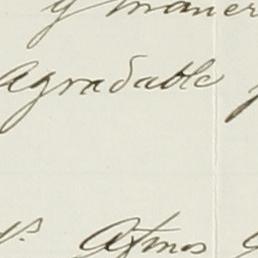 y maner
agradable
Afmos